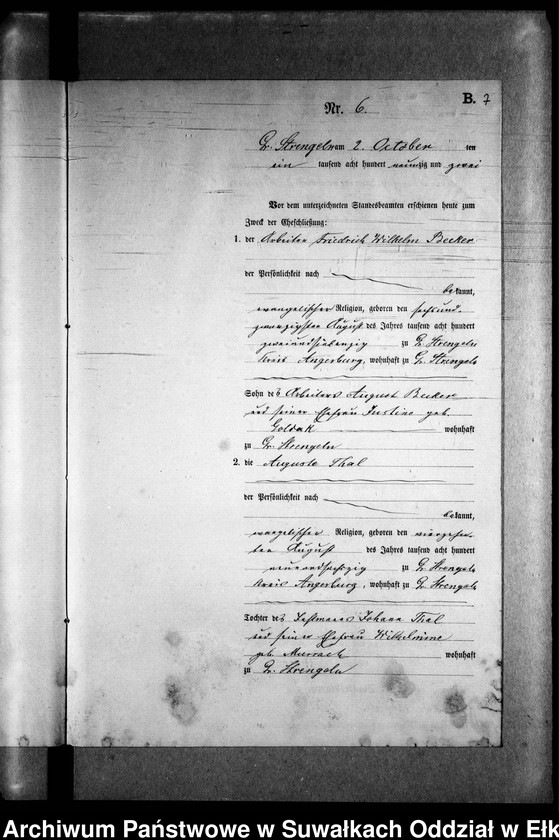 B. 7
Nr. 6.
Gr. Strengeln am 2. October ten
ein tausend acht hundert neunzig und zwei
Vor dem unterzeichneten Standesbeamten erschienen heute zum
Zweck der Eheschließung:
1. der Arbeiter Friedrich Wilhelm Becker
der Persönlichkeit nach
bekannt,
evangelischer Religion, geboren den sechsund-
zwanzigsten August des Jahres tausend acht hundert
zweiundsiebenzig zu Gr. Strengeln
Kreis Angerburg, wohnhaft zu Gr. Strengeln
Sohn des Arbeiters August Becker
und seiner Ehefrau Justine geb.
Goldak wohnhaft
zu Gr. Strengeln
2. die Auguste Thal
der Persönlichkeit nach
bekannt,
evangelischer Religion, geboren den vierzehn-
ten August des Jahres tausend acht hundert
neunundsechzig zu Gr. Strengeln
Kreis Angerburg, wohnhaft zu Gr. Strengeln
Tochter des Instmanns Johann Thal
und seiner Ehefrau Wilhelmine
geb. Murrach wohnhaft
zu Gr. Strengeln
Archiwum Państwowe w Suwałkach Oddział w Ełk